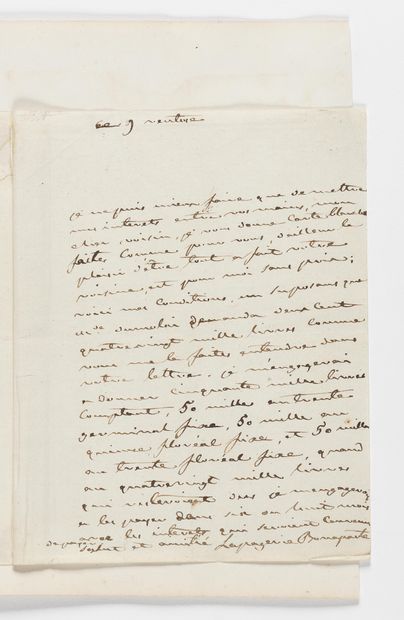 ce 9 ventose
je ne puis mieux faire que de mettre
mes interets entre vos mains, mon
cher voisin, je vous donne carte blanche
faites comme pour vous, d'ailleurs le
plaisir d'être tout a fait votre
voisine, est pour moi sans prix;
voici mes conditions, en supposant que
demanda deux cent
quatrevingt mille livres comme
vous me le faites entendre dans
votre lettre. je m'engagerai
a donner cinquante mille livres
comptant, 50 mille en trente
germinal fixe, 50 mille au
quinze floréal fixe, et 50 mille
au trente floréal fixe, quand
au quatrevingt mille livres
qui resteroient dus je m'engagerai
a les payer dans six ou huit mois
avec les interets qui seroient convenu
de payer
salut et amitié Lapagerie Bonaparte